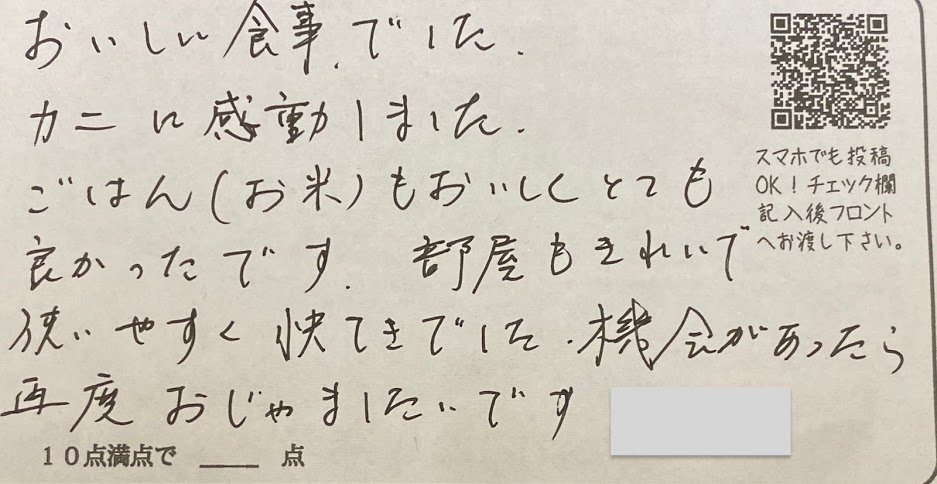 おいしい食事でした.
カニに感動しました.
ごはん(お米)もおいしくとても
良かったです. 部屋もきれいで
使いやすく快てきでした.機会があったら
再度おじゃましたいです
スマホでも投稿
OK!チェック欄
記入後フロント
へお渡し下さい。
10点満点で ___ 点